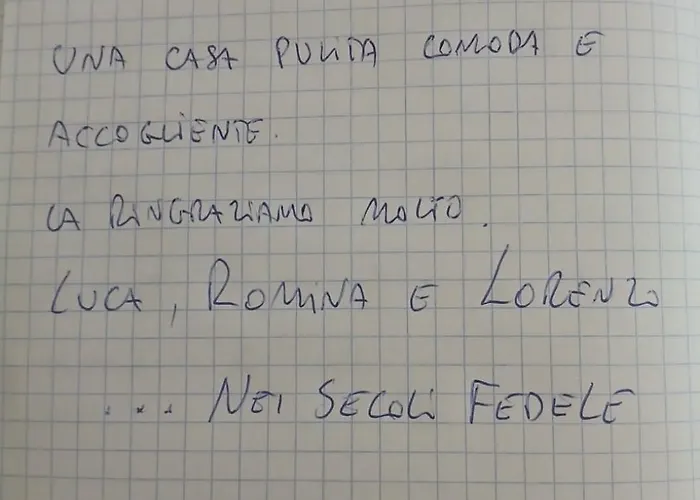 UNA CASA PULITA COMODA E
ACCOGLIENTE.
LA RINGRAZIAMO MOLTO.
LUCA, ROMINA E LORENZO
... NEI SECOLI FEDELE